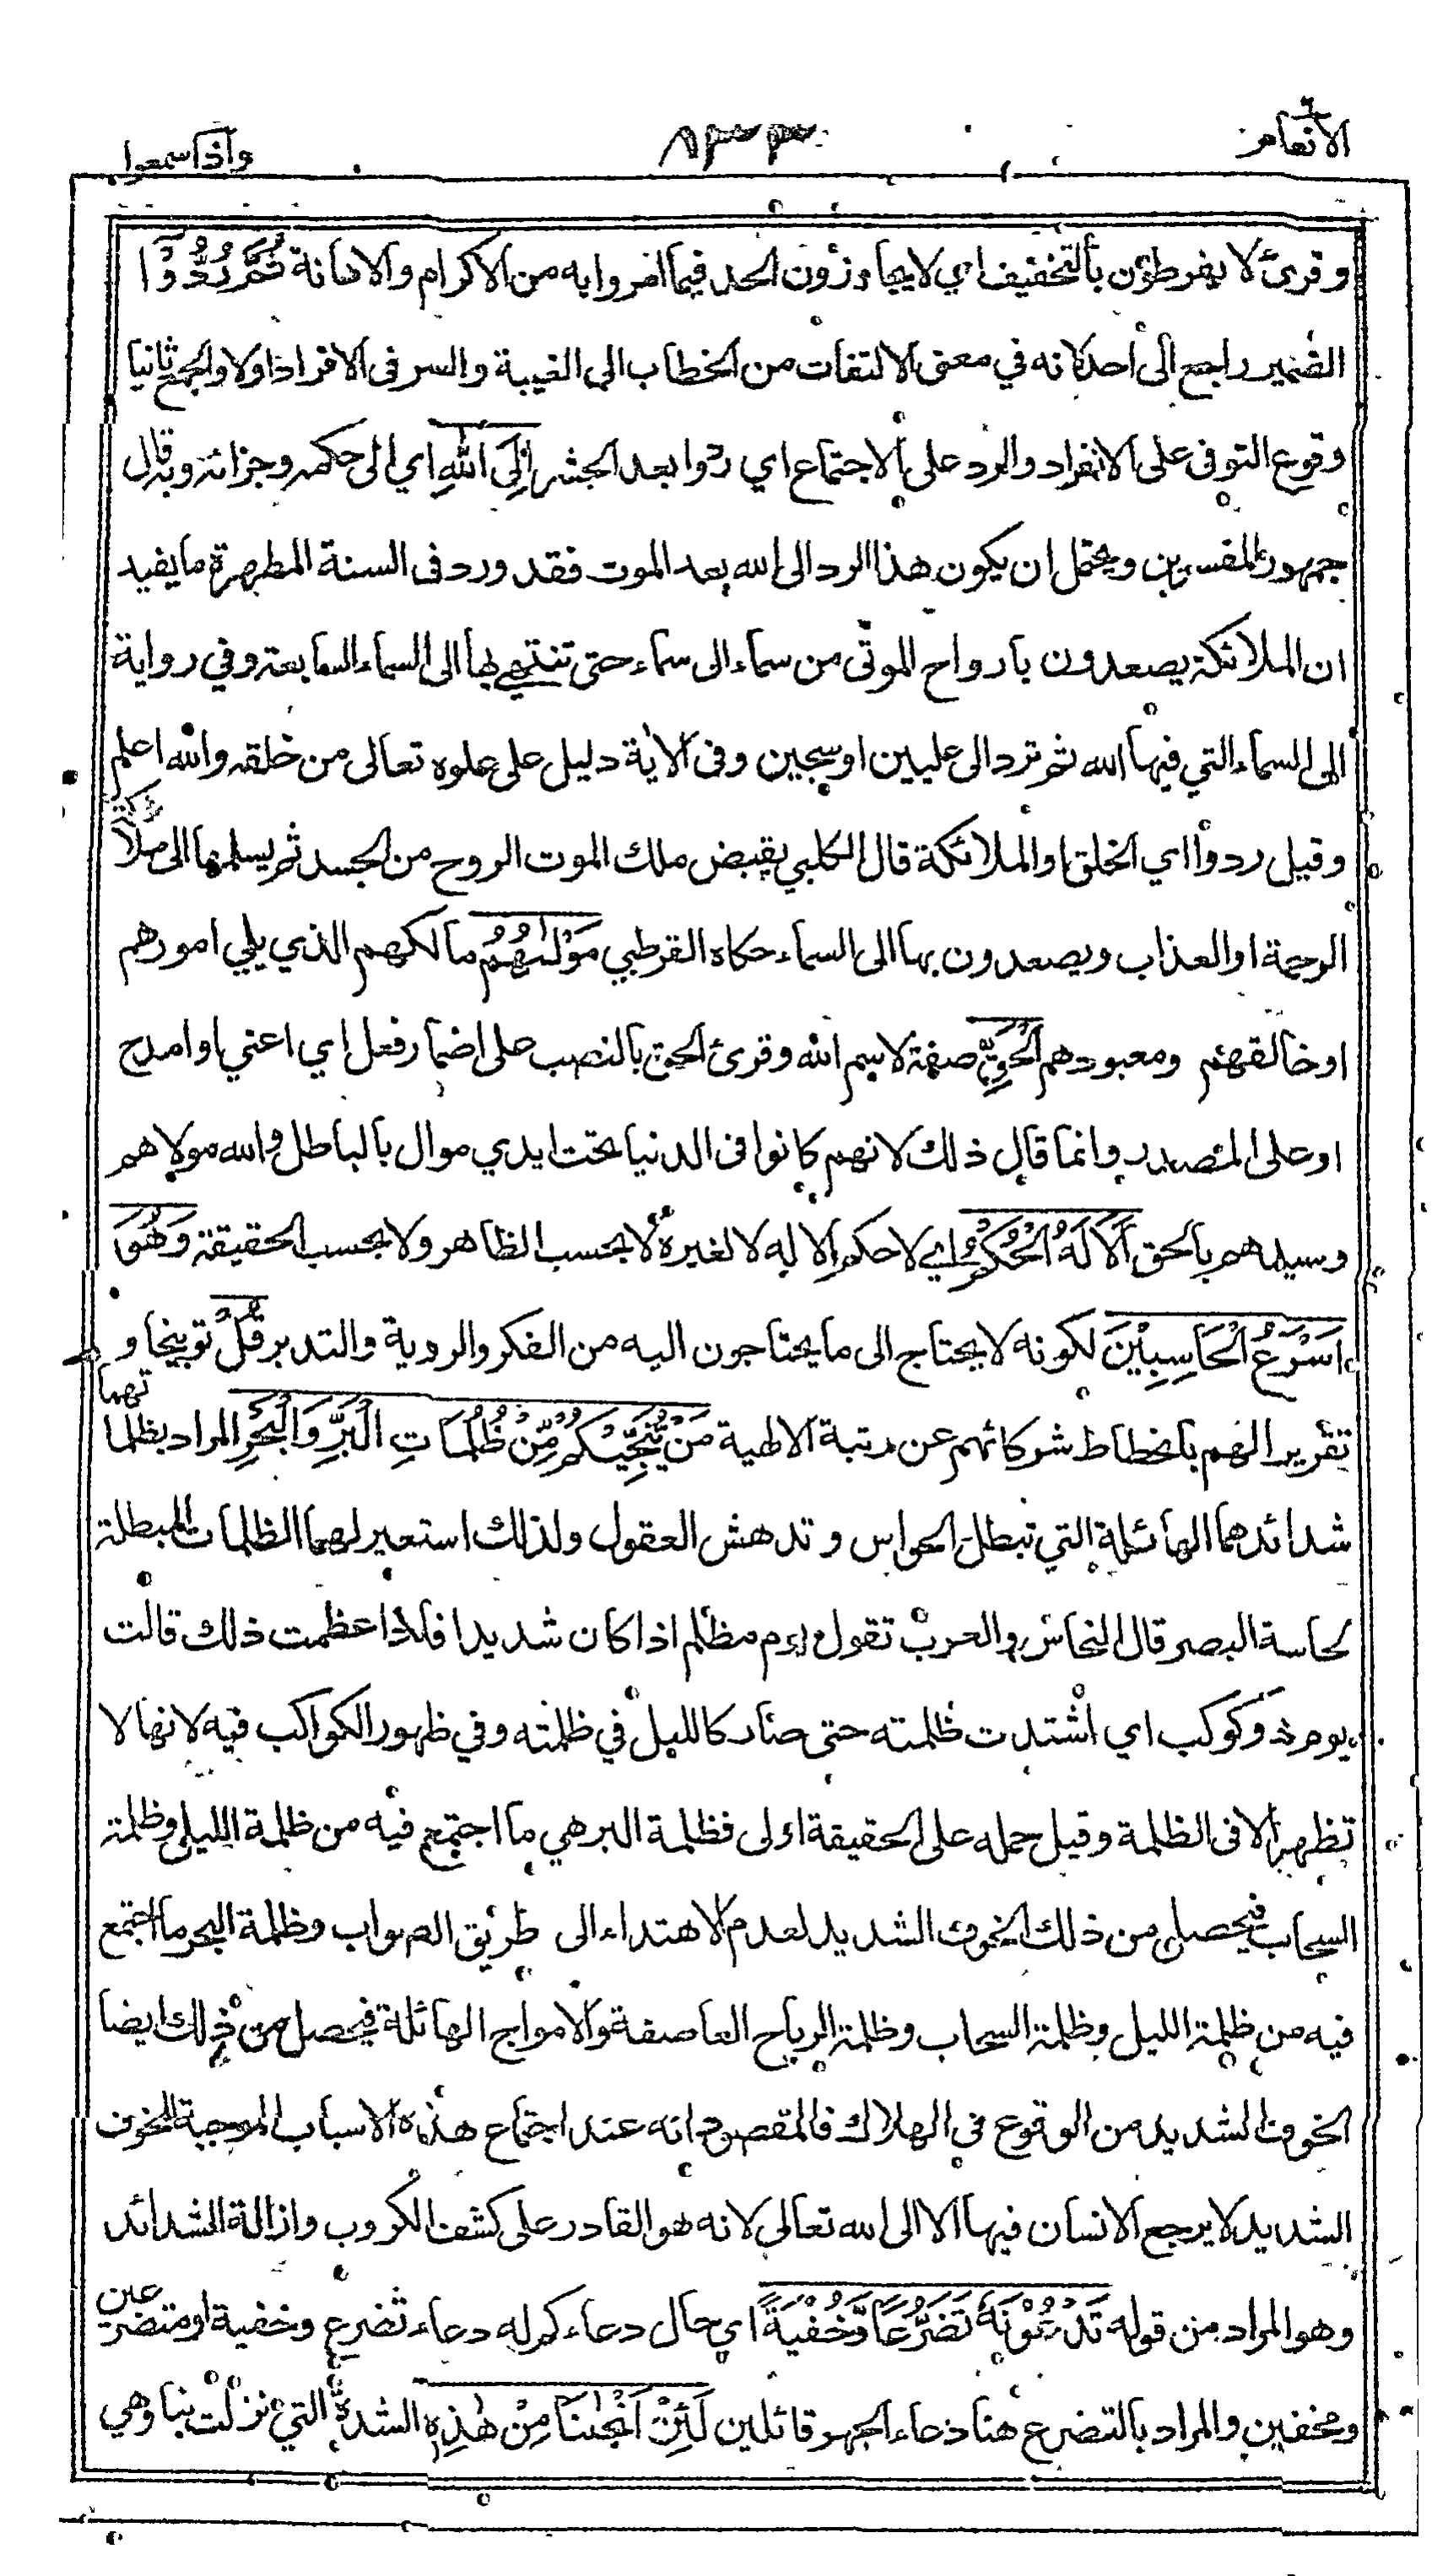 الأنعام ٦
٨٣٣
وإذا سمعوا
وقرئ لا يفرطون بالتخفيف اي لا يجاوزون الحد فيما امروا به من الاكرام والاهانة ثُمَّ رُدُّوْا
الضمير راجع الى احد لانه في معنى الالتفات من الخطاب الى الغيبة والسر فى الافراد اولا والجمع ثانيا
وقوع التوفى على الانفراد والرد على الاجتماع اي ردوا بعد الحشر اِلَى اللهِ اي الى حكمه وجزائه وبه قال
جمهور المفسرين ويحتمل ان يكون هذا الرد الى الله بعد الموت فقد ورد فى السنة المطهرة ما يفيد
ان الملائكة يصعدون بارواح الموتى من سماء الى سماء حتى تنتهي بها الى السماء السابعة وفي رواية
الى السماء التي فيها الله ثم ترد الى عليين او سجين وفى الآية دليل على علوه تعالى من خلقه والله اعلم
وقيل ردوا اي الخلق او الملائكة قال الكلبي يقبض ملك الموت الروح من الجسد ثم يسلمها الى ملائكة
الرحمة او العذاب ويصعدون بها الى السماء حكاه القرطبي مَوْلٰىهُمُ مالكهم الذي يلي امورهم
او خالقهم ومعبودهم الْحَقِّ صفة لاسم الله وقرئ الحق بالنصب على اضمار فعل اي اعني او امدح
او على المصدر وانما قال ذلك لانهم كانوا فى الدنيا تحت ايدي موال بالباطل والله مولاهم
وسيدهم بالحق اَلَا لَهُ الْحُكْمُ اي لا حكم الا له لا لغيره لا بحسب الظاهر ولا بحسب الحقيقة وَهُوَ
اَسْرَعُ الْحَاسِبِيْنَ لكونه لا يحتاج الى ما يحتاجون اليه من الفكر والروية والتدبر قُلْ توبيخا و
تقريرا لهم بانحطاط شركائهم عن رتبة الالهية مَنْ يُّنَجِّيْكُمْ مِّنْ ظُلُمَاتِ الْبَرِّ وَالْبَحْرِ المراد بظلماتهما
شدائدهما الهائلة التي تبطل الحواس وتدهش العقول ولذلك استعير لهما الظلمات المبطلة
لحاسة البصر قال النحاس والعرب تقول يوم مظلم اذا كان شديدا فاذا عظمت ذلك قالت
يوم ذو كوكب اي اشتدت ظلمته حتى صار كالليل في ظلمته وفي ظهور الكواكب فيه لانها لا
تظهر الا فى الظلمة وقيل حمله على الحقيقة اولى فظلمة البر هي ما اجتمع فيه من ظلمة الليل وظلمة
السحاب فيحصل من ذلك الخوف الشديد لعدم الاهتداء الى طريق الصواب وظلمة البحر ما اجتمع
فيه من ظلمة الليل وظلمة السحاب وظلمة الرياح العاصفة والامواج الهائلة فيحصل من ذلك ايضا
الخوف الشديد من الوقوع في الهلاك فالمقصود انه عند اجتماع هذه الاسباب الموجبة للخوف
الشديد لا يرجع الانسان فيها الا الى الله تعالى لانه هو القادر على كشف الكروب وازالة الشدائد
وهو المراد من قوله تَدْعُوْنَهٗ تَضَرُّعًا وَّخُفْيَةً اي حال دعاءكم له دعاء تضرع وخفية او متضرعين
ومخفين والمراد بالتضرع هنا دعاء الجهر قائلين لَئِنْ اَنْجٰىنَا مِنْ هٰذِهٖ الشدة التي نزلت بنا وهي